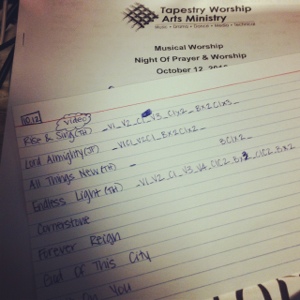 Tapestry Worship
Arts Ministry
Music • Drama • Dance • Media • Technical
Musical Worship
Night Of Prayer & Worship
October 12,
10.12
video
Rise & Sing (TH) - V1_V2_C1_V3_C1x2_Bx2C1x3_
Lord Almighty (JT) - V1C1_V2C1_Bx2C1x2_
All Things New (TH) - BC1x2_
Endless Light (TH) - V1_V2_C1_V3_V4_C1C2_Bx2_C1C2_Bx2
Cornerstone
Forever Reign
God Of This City
You